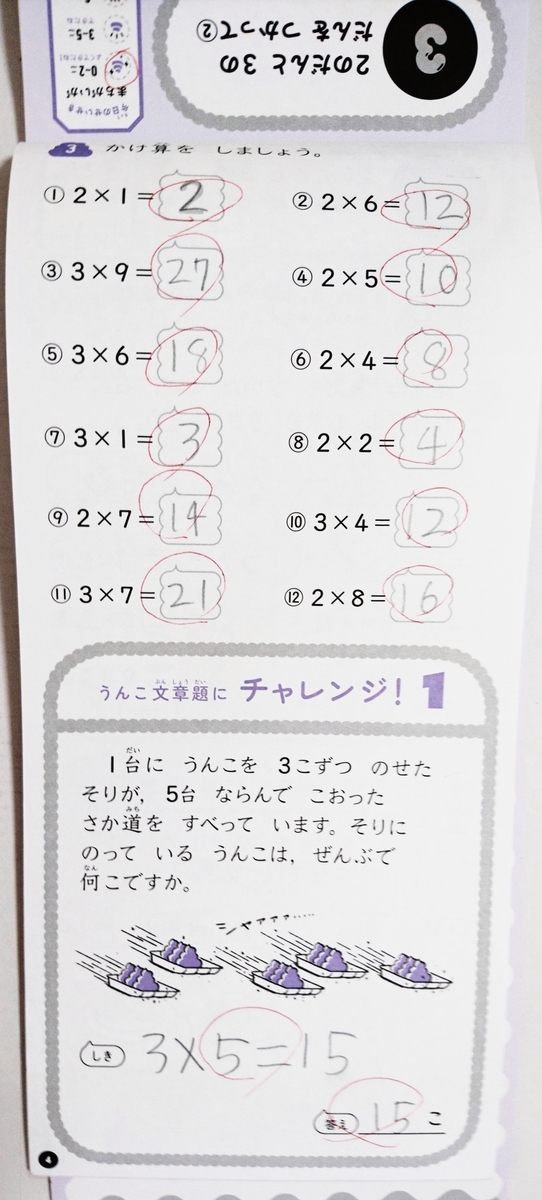 3
2のだんと 3の
だんを つかって②
今日のせいせき
まちがいが
0-2こ
よくできたね!
3-5こ
できたね
3 かけ算を しましょう。
① 2×1=2
② 2×6=12
③ 3×9=27
④ 2×5=10
⑤ 3×6=18
⑥ 2×4=8
⑦ 3×1=3
⑧ 2×2=4
⑨ 2×7=14
⑩ 3×4=12
⑪ 3×7=21
⑫ 2×8=16
うんこ文章題に チャレンジ! 1
ぶんしょうだい
1台に うんこを 3こずつ のせた
だい
そりが, 5台 ならんで こおった
さか道を すべって います。そりに
みち
のって いる うんこは, ぜんぶで
何こですか。
なん
シャァァァ……
しき 3×5=15
答え 15こ
4